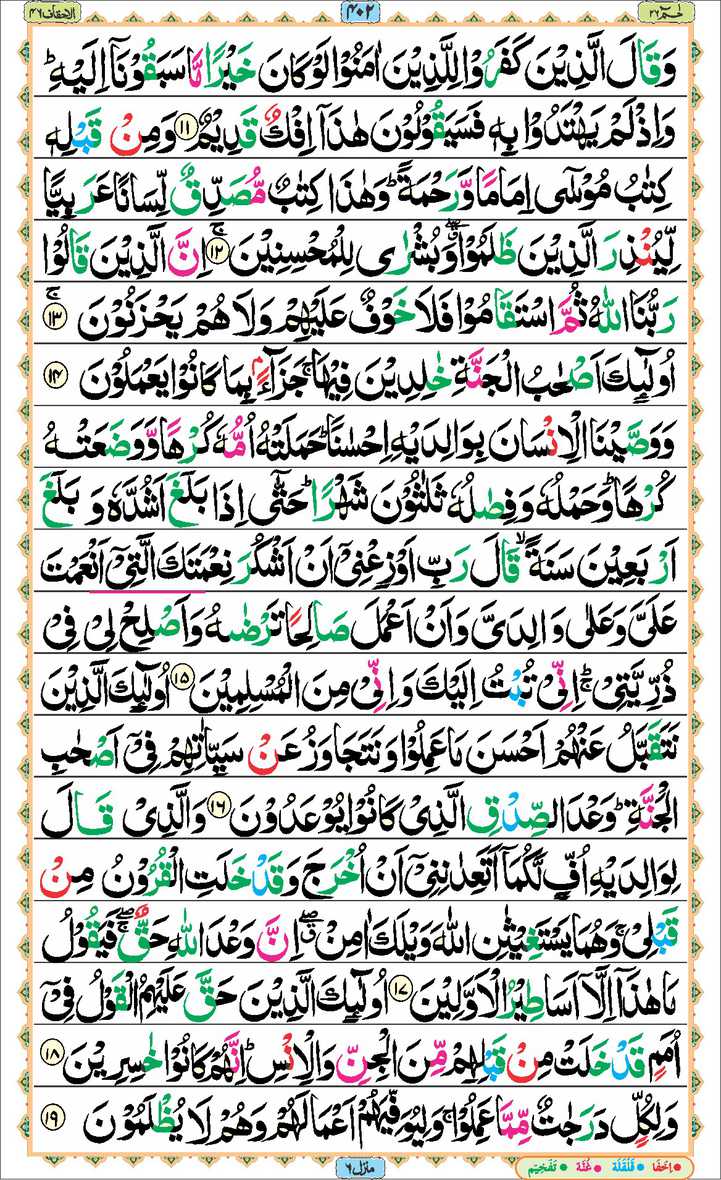 الاحقاف ٤٦
٤٠٢
حٰمٓ ٢٦
وَقَالَ الَّذِيۡنَ كَفَرُوۡا لِلَّذِيۡنَ اٰمَنُوۡا لَوۡ كَانَ خَيۡرًا مَّا سَبَقُوۡنَاۤ اِلَيۡهِ ؕ
وَاِذۡ لَمۡ يَهۡتَدُوۡا بِهٖ فَسَيَقُوۡلُوۡنَ هٰذَاۤ اِفۡكٌ قَدِيۡمٌ ۝۱۱ وَمِنۡ قَبۡلِهٖ
كِتٰبُ مُوۡسٰٓى اِمَامًا وَّرَحۡمَةً ؕ وَهٰذَا كِتٰبٌ مُّصَدِّقٌ لِّسَانًا عَرَبِيًّا
لِّيُنۡذِرَ الَّذِيۡنَ ظَلَمُوۡا ۖ وَبُشۡرٰى لِلۡمُحۡسِنِيۡنَ ۚ‏ ۝۱۲ اِنَّ الَّذِيۡنَ قَالُوۡا
رَبُّنَا اللّٰهُ ثُمَّ اسۡتَقَامُوۡا فَلَا خَوۡفٌ عَلَيۡهِمۡ وَلَا هُمۡ يَحۡزَنُوۡنَ ۚ‏ ۝۱۳
اُولٰٓٮِٕكَ اَصۡحٰبُ الۡجَنَّةِ خٰلِدِيۡنَ فِيۡهَا ۚ جَزَآءًۢ بِمَا كَانُوۡا يَعۡمَلُوۡنَ ۝۱۴
وَوَصَّيۡنَا الۡاِنۡسَانَ بِوَالِدَيۡهِ اِحۡسٰنًا ؕ حَمَلَتۡهُ اُمُّهٗ كُرۡهًا وَّوَضَعَتۡهُ
كُرۡهًا ؕ وَحَمۡلُهٗ وَفِصٰلُهٗ ثَلٰثُوۡنَ شَهۡرًا ؕ حَتّٰٓى اِذَا بَلَغَ اَشُدَّهٗ وَبَلَغَ
اَرۡبَعِيۡنَ سَنَةً ۙ قَالَ رَبِّ اَوۡزِعۡنِىۡۤ اَنۡ اَشۡكُرَ نِعۡمَتَكَ الَّتِىۡۤ اَنۡعَمۡتَ
عَلَىَّ وَعَلٰى وَالِدَىَّ وَاَنۡ اَعۡمَلَ صَالِحًا تَرۡضٰٮهُ وَاَصۡلِحۡ لِىۡ فِىۡ
ذُرِّيَّتِىۡ ؕۚ اِنِّىۡ تُبۡتُ اِلَيۡكَ وَاِنِّىۡ مِنَ الۡمُسۡلِمِيۡنَ ۝۱۵ اُولٰٓٮِٕكَ الَّذِيۡنَ
نَتَقَبَّلُ عَنۡهُمۡ اَحۡسَنَ مَا عَمِلُوۡا وَنَتَجَاوَزُ عَنۡ سَيِّاٰتِهِمۡ فِىۡۤ اَصۡحٰبِ
الۡجَنَّةِ ؕ وَعۡدَ الصِّدۡقِ الَّذِىۡ كَانُوۡا يُوۡعَدُوۡنَ ۝۱۶ وَالَّذِىۡ قَالَ
لِوَالِدَيۡهِ اُفٍّ لَّكُمَاۤ اَتَعِدٰنِنِىۡۤ اَنۡ اُخۡرَجَ وَقَدۡ خَلَتِ الۡقُرُوۡنُ مِنۡ
قَبۡلِىۡ ۚ وَهُمَا يَسۡتَغِيۡثٰنِ اللّٰهَ وَيۡلَكَ اٰمِنۡ ۖ اِنَّ وَعۡدَ اللّٰهِ حَقٌّ ۖۚ فَيَقُوۡلُ
مَا هٰذَاۤ اِلَّاۤ اَسَاطِيۡرُ الۡاَوَّلِيۡنَ ۝۱۷ اُولٰٓٮِٕكَ الَّذِيۡنَ حَقَّ عَلَيۡهِمُ الۡقَوۡلُ فِىۡۤ
اُمَمٍ قَدۡ خَلَتۡ مِنۡ قَبۡلِهِمۡ مِّنَ الۡجِنِّ وَالۡاِنۡسِ ؕ اِنَّهُمۡ كَانُوۡا خٰسِرِيۡنَ ۝۱۸
وَلِكُلٍّ دَرَجٰتٌ مِّمَّا عَمِلُوۡا ۚ وَلِيُوَفِّيَهُمۡ اَعۡمَالَهُمۡ وَهُمۡ لَا يُظۡلَمُوۡنَ ۝۱۹
منزل ٦
اِخفَا قَلقَلَه غُنَّه تَفخِيم